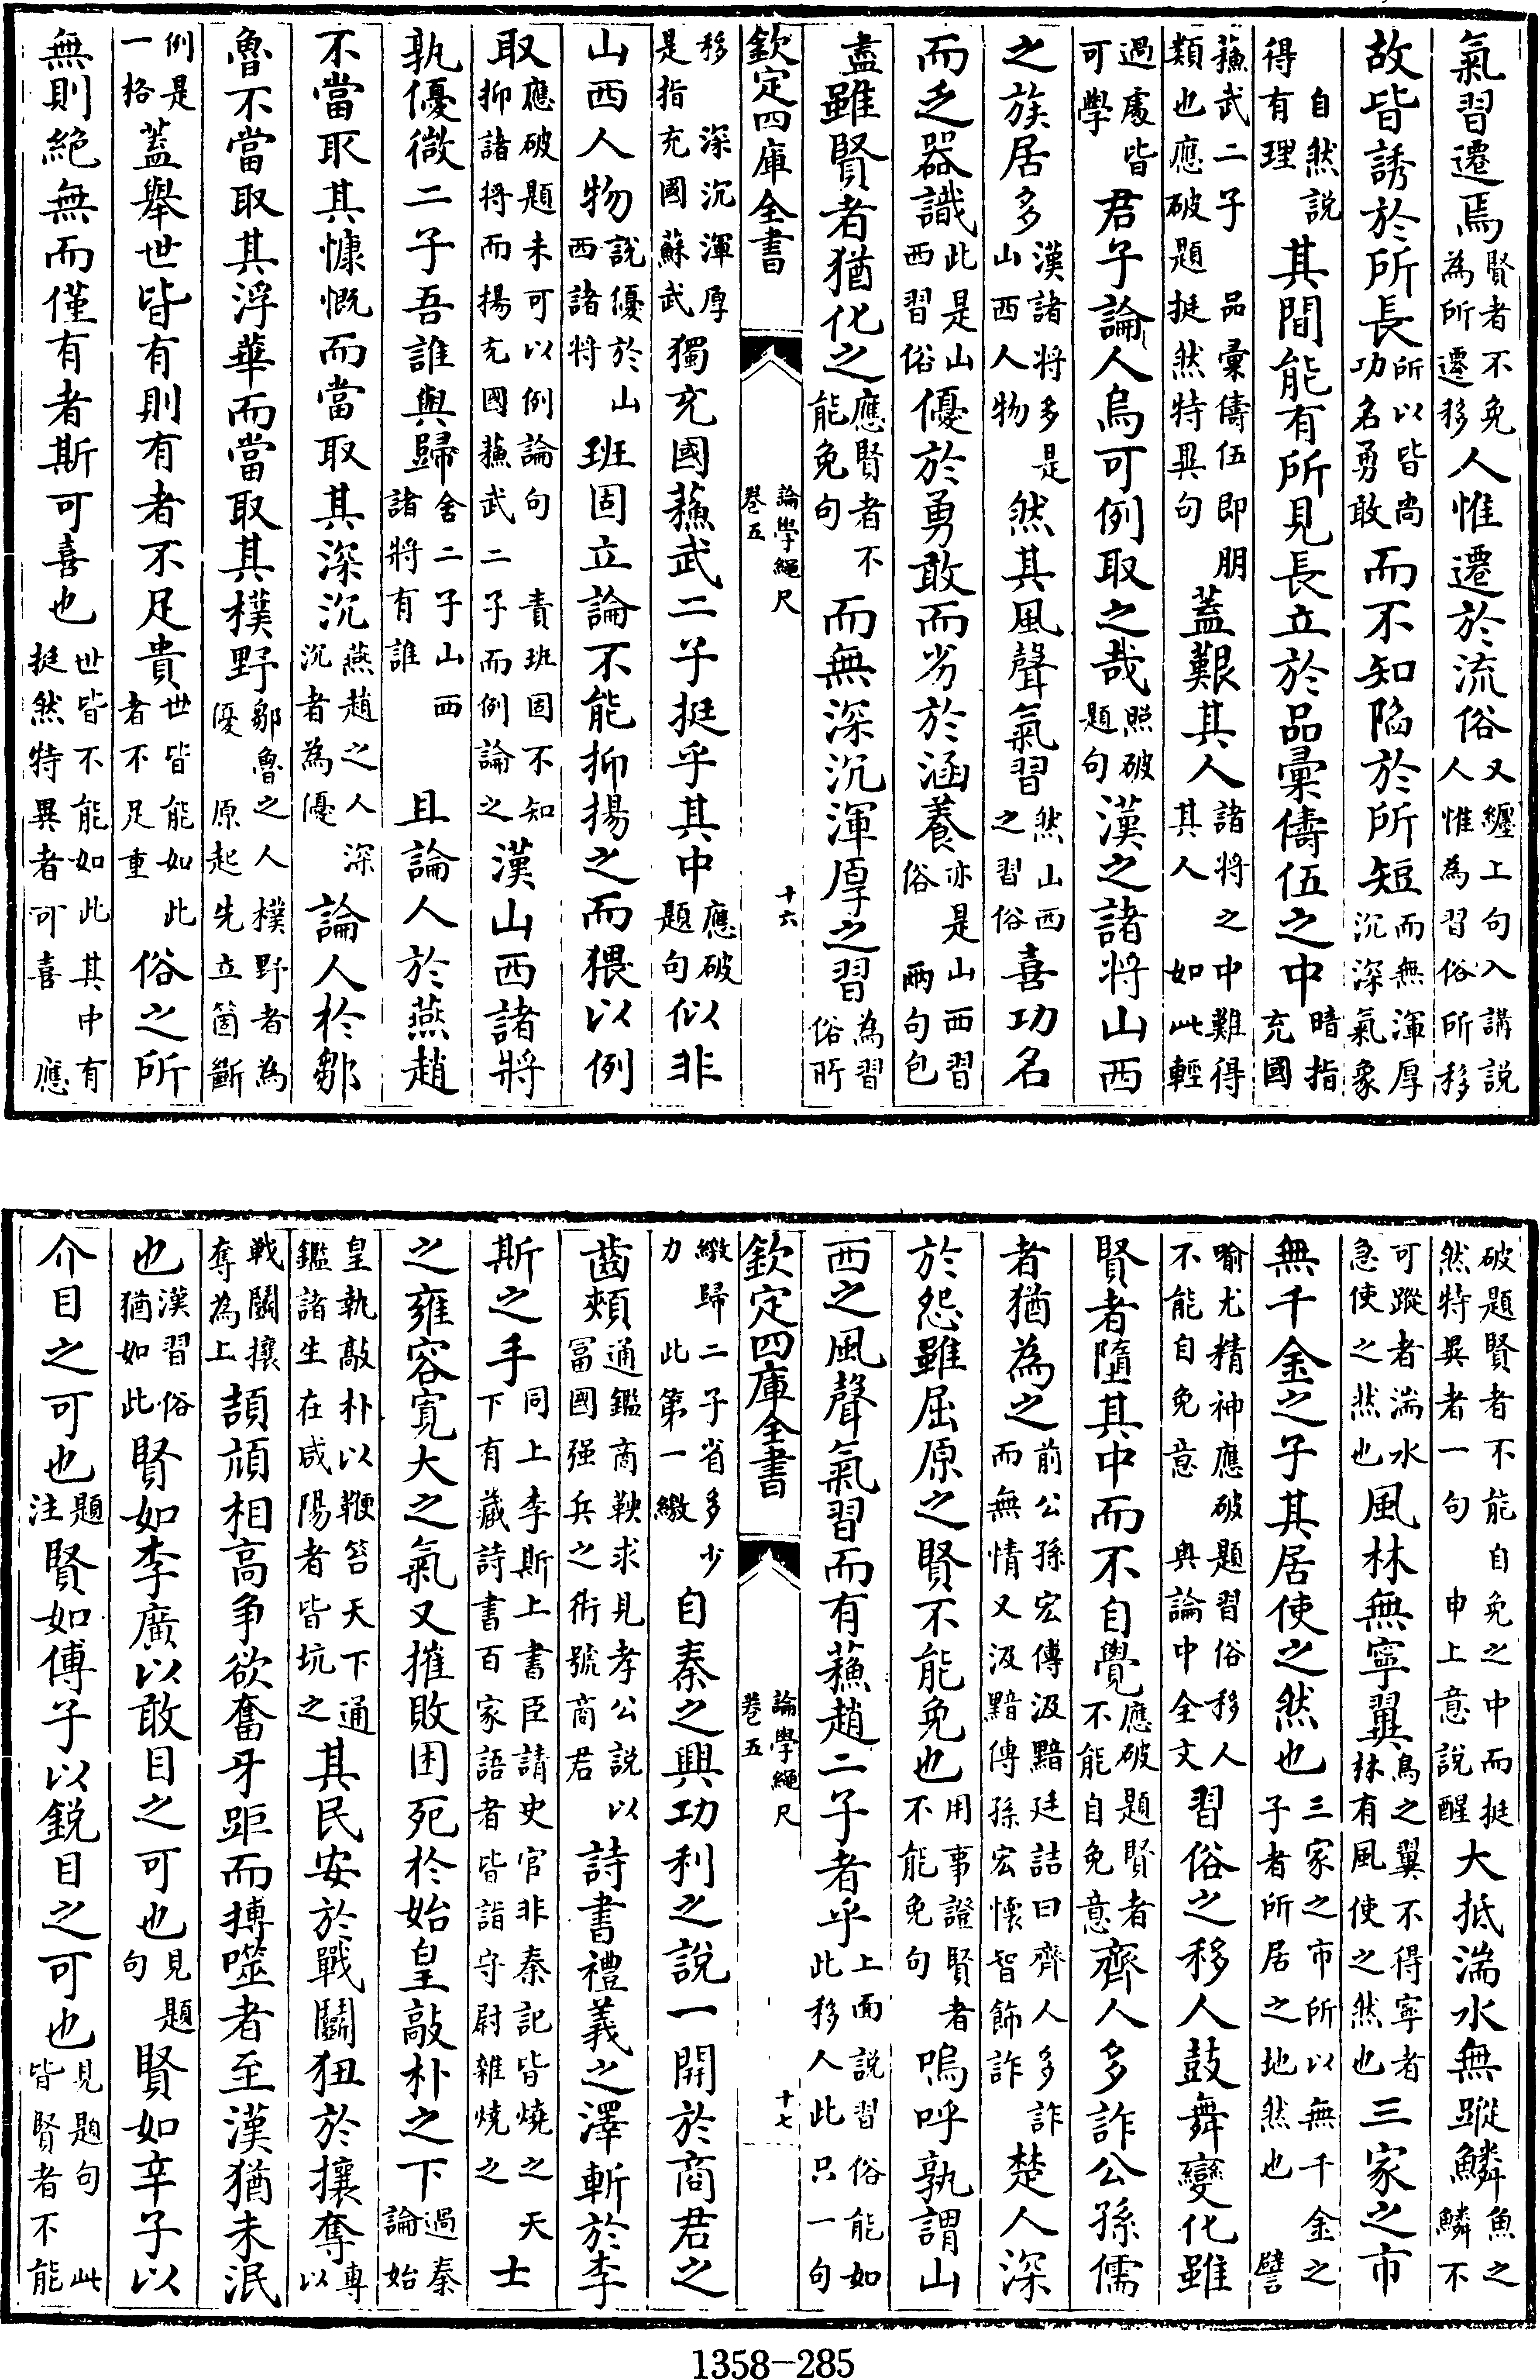 氣習遷焉賢者不免為所遷移人惟遷於流俗又纏上句入講說人惟為習俗所移
故皆誘於所長所以皆尚功名勇敢而不知陷於所短而無渾厚沉深氣象
自然說得有理其間能有所見長立於品彚儔伍之中暗指充國
蘓武二子 品彚儔伍即朋類也應破題挺然特異句蓋艱其人諸將之中難得其人如此輕
過處皆可學君子論人烏可例取之哉照破題句漢之諸將山西
之族居多漢諸將多是山西人物然其風聲氣習然山西之習俗喜功名
而乏器識此是山西習俗優於勇敢而劣於涵養亦是山西習俗兩句包
盡雖賢者猶化之應賢者不能免句而無深沉渾厚之習為習俗所
欽定四庫全書 論學繩尺 卷五 十六
移是指 深沉渾厚充國蘇武獨充國蘓武二子挺乎其中應破題句似以非
山西人物說優於山西諸將班固立論不能抑揚之而猥以例
取應破題未可以例論句 責班固不知抑諸將而揚充國蘓武二子而例論之漢山西諸將
孰優微二子吾誰與歸舍二子山西諸將有誰且論人於燕趙
不當取其慷慨而當取其深沉燕趙之人深沉者為優論人於鄒
魯不當取其浮華而當取其樸野鄒魯之人樸野者為優 原起先立箇斷
例是一格蓋舉世皆有則有者不足貴世皆能如此者不足重俗之所
無則絶無而僅有者斯可喜也世皆不能如此其中有挺然特異者可喜 應
破題賢者不能自免之中而挺然特異者一句 申上意說醒大抵湍水無蹤鱗魚之鱗不
可蹤者湍水急使之然也風林無寧翼鳥之翼不得寧者林有風使之然也三家之市
無千金之子其居使之然也三家之市所以無千金之子者所居之地然也 譬
喻尤精神應破題習俗移人不能自免意 與論中全文習俗之移人鼓舞變化雖
賢者隨其中而不自覺應破題賢者不能自免意齊人多詐公孫儒
者猶為之前公孫宏傳汲黯廷詰曰齊人多詐而無情又汲黯傳孫宏懷智飾詐楚人深
於怨雖屈原之賢不能免也用事證賢者不能免句嗚呼孰謂山
西之風聲氣習而有蘓趙二子者乎上面說習俗能如此移人此只一句
欽定四庫全書 論學繩尺 卷五 十七
繳歸二子省多少力 此第一繳自秦之興功利之說一開於商君之
齒頰通鑑商鞅求見孝公說以富國强兵之術號商君詩書禮義之澤斬於李
斯之手同上李斯上書臣請史官非秦記皆燒之天下有藏詩書百家語者皆詣守尉雜燒之士
之雍容寛大之氣又摧敗困死於始皇敲朴之下過秦論始
皇執敲朴以鞭笞天下通鑑諸生在咸陽者皆坑之其民安於戰鬭狃於攘奪專以
戰鬭攘奪為上頡頏相高爭欲奮牙距而搏噬者至漢猶未泯
也漢習俗猶如此賢如李廣以敢目之可也見題句賢如辛子以
介目之可也題注賢如傅子以銳目之可也見題句 此皆賢者不能
1358-285